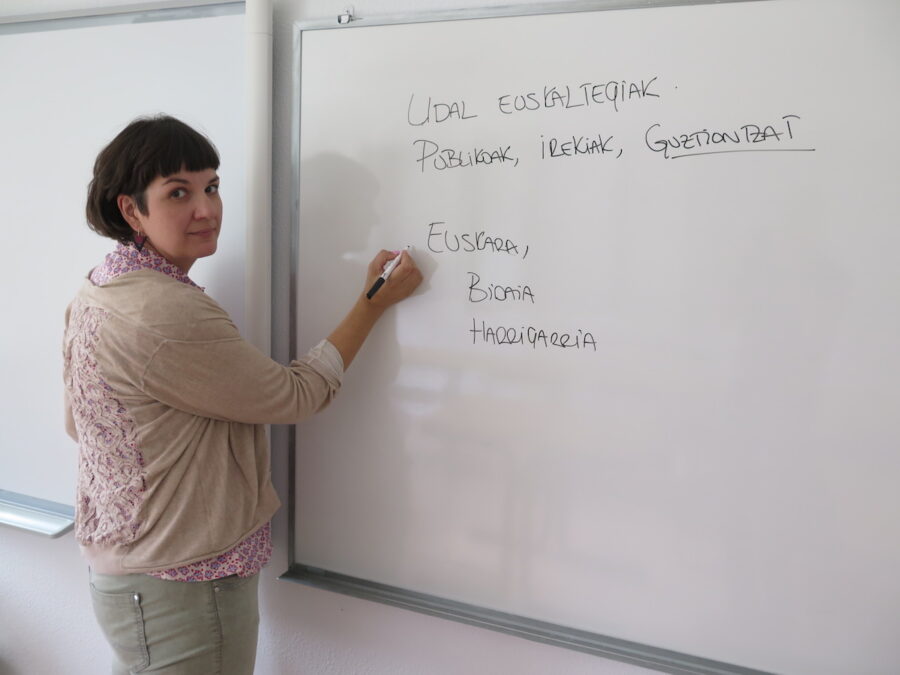 UDAL EUSKALTEGIAK.
PUBLIKOAK, IREKIAK, GUZTIONTZAT
EUSKARA,
BIDAIA
HARRIGARRIA